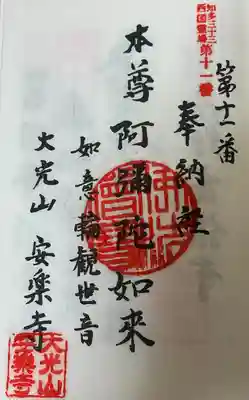 知多三十三
西国霊場第十一番
第十一番
奉納経
本尊阿彌陀如來
如意輪観世音
大光山安楽寺
大光山
安楽寺